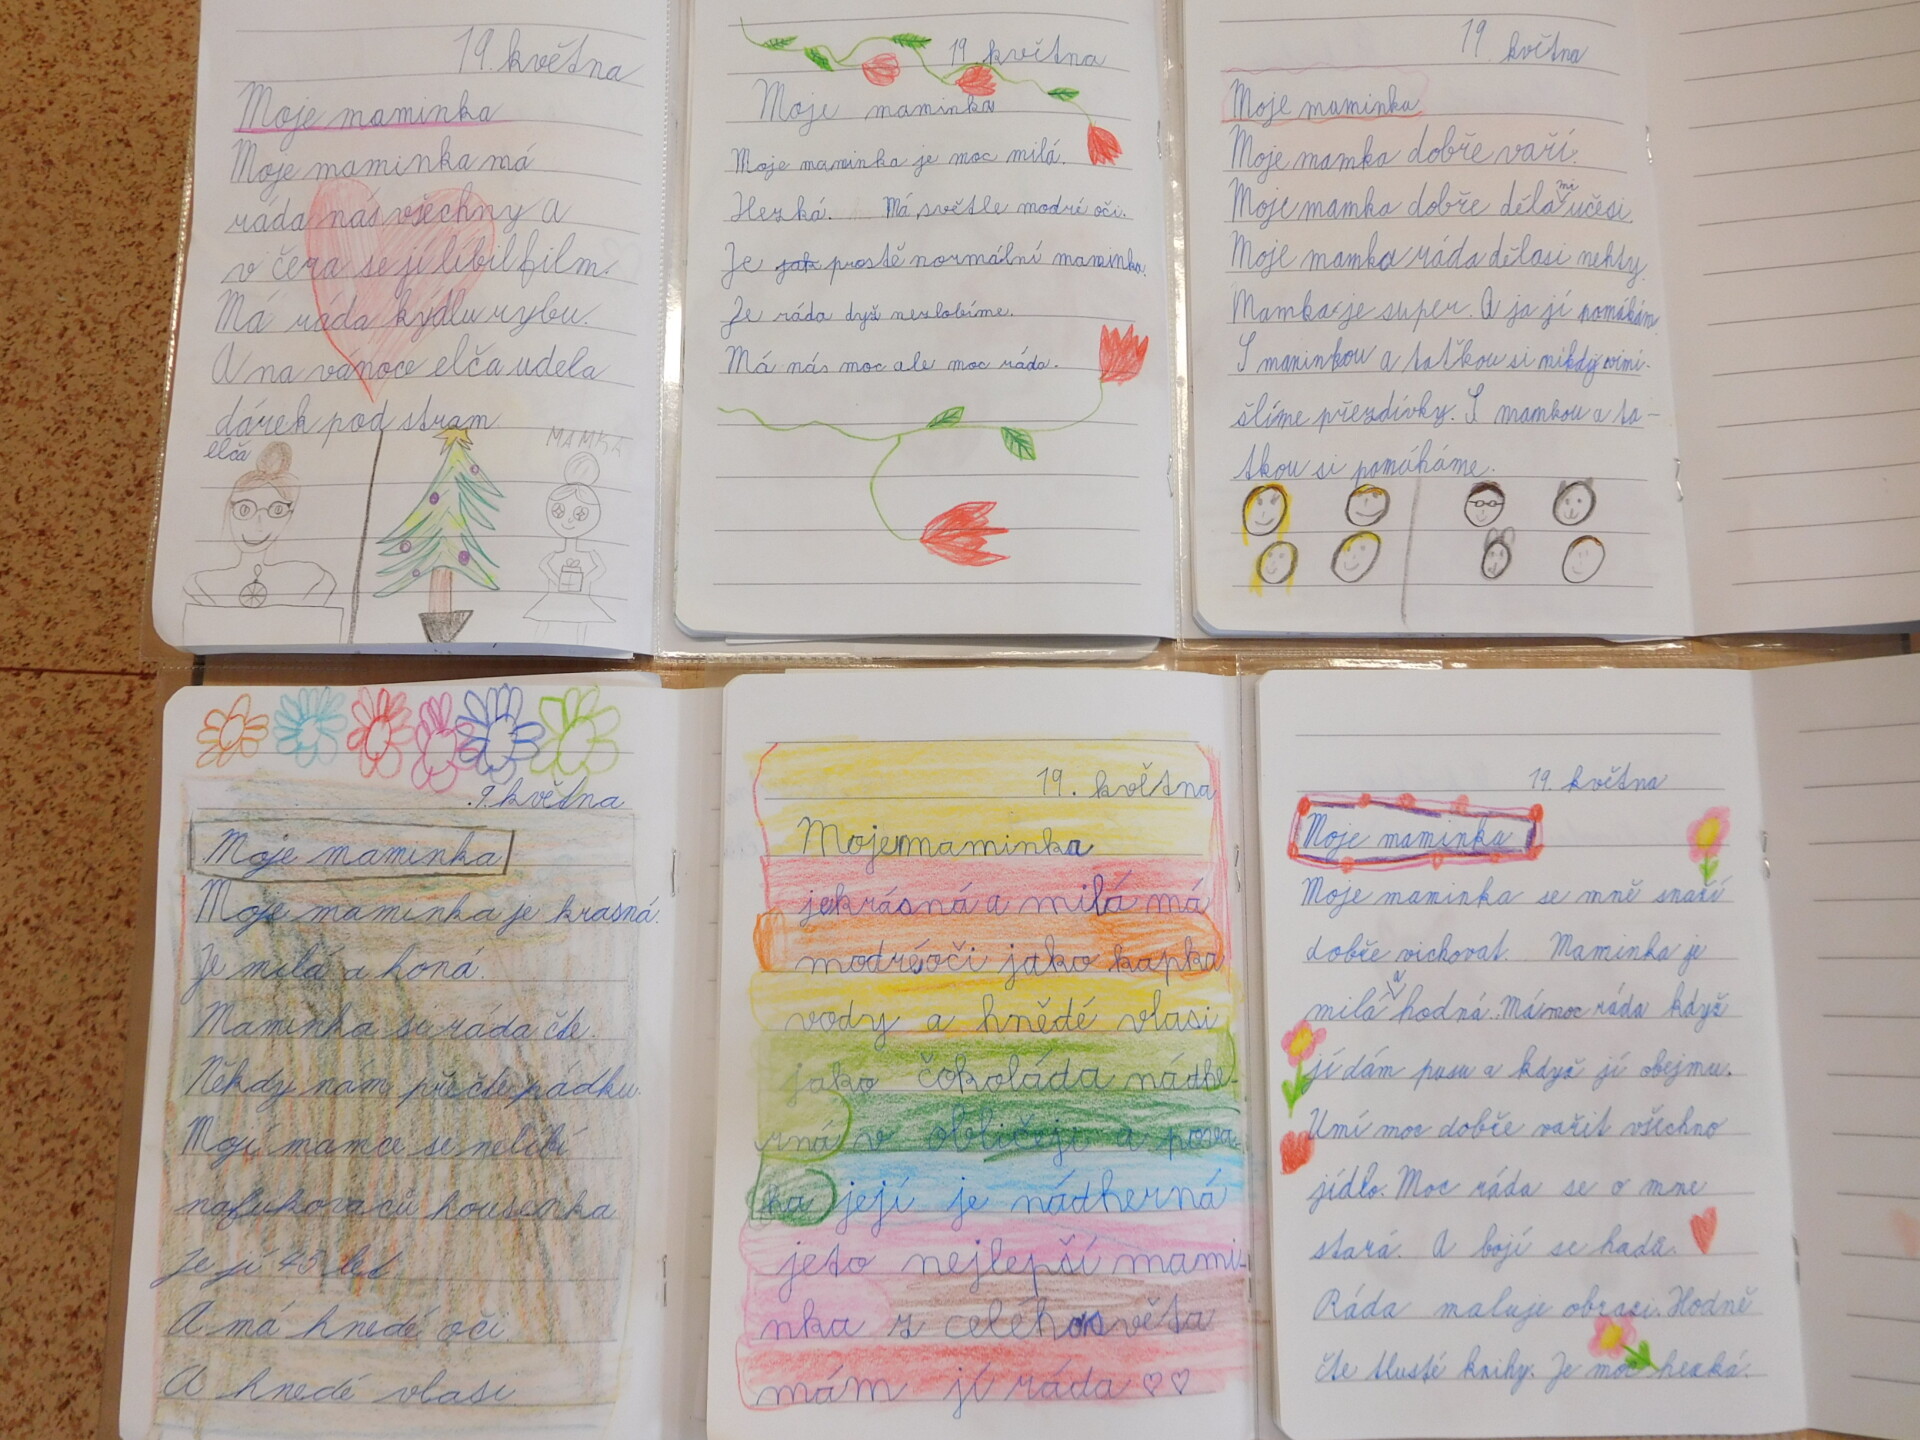 19. května
Moje maminka
Moje maminka má
ráda nás všechny a
v čera se jí líbil film.
Má ráda kýdlu rybu.
A na vánoce elča udela
dárek pod stram
elča
MAMKA
19. května
Moje maminka
Moje maminka je moc milá.
Hezká. Má světle modré oči.
Je jak prostě normální maminka.
Je ráda dyž nezlobíme.
Má nás moc ale moc ráda.
19. května
Moje maminka
Moje mamka dobře vaří.
mi
Moje mamka dobře děla učesi.
Moje mamka ráda dělasi nehty.
Mamka je super. A ja jí pomákám
S maminkou a taťkou si někdy vimi-
šlíme přezdívky. S mamkou a ta-
tkou si pomáháme.
9. května
Moje maminka
Moje maminka je krasná.
Je milá a honá.
Maminka si ráda čte.
Někdy nám přečte pádku.
Mojí mamce se nelíbí
nafukovací housenka
Je jí 45 let
A má hnedé oči.
A hnedé vlasi.
19. května
Moje maminka
jekrásná a milá má
modré oči jako kapka
vody a hnědé vlasi
jako čokoláda nádhe-
rná v obličeji a pova-
ha její je nádherná
jeto nejlepší mami-
nka z celého světa
mám jí ráda ♡♡
19. května
Moje maminka
Moje maminka se mně snaží
dobře vichovat. Maminka je
a
milá hodná. Má moc ráda když
jí dám pusu a když jí obejmu.
Umí moc dobře vařit všechno
jídlo. Moc ráda se o mne
stará. A bojí se hadů.
Ráda maluje obrazi. Hodně
čte tlusté knihy. Je moc hezká.